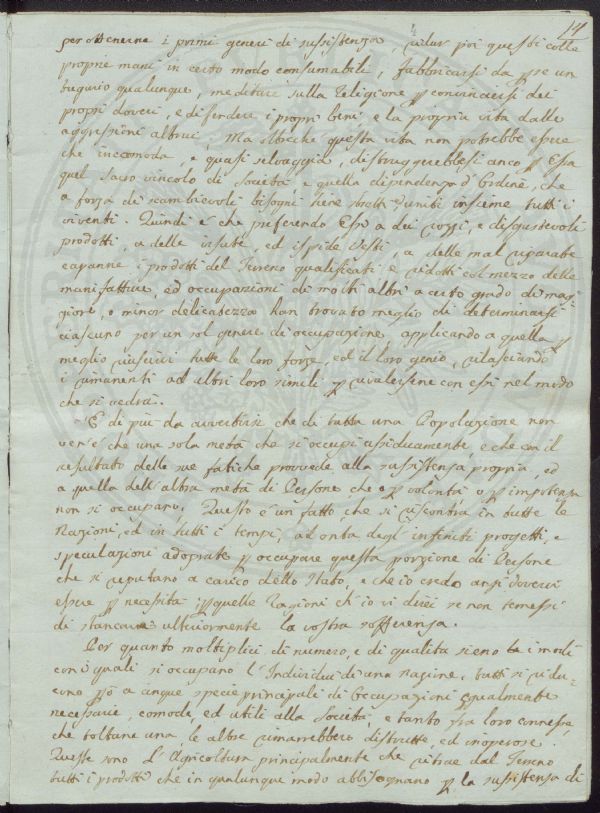 17
per ottenerne i primi generi di sussistenza, ridur poi questi colle
proprie mani in certo modo consumabili, fabbricarsi da p se un
tugurio qualunque, meditare sulla Religione p convincersi dei
propri doveri, e difendere i propri beni, e la propria vita dalle
aggressioni altrui. Ma oltrechè questa vita non potrebbe essere
che incomoda, e quasi selvaggia, distruggerebbesi anco p Essa
quel sacro vincolo di società e quella dipendenza d'ordine, che
a forza di scambievoli bisogni tiene stretti ed uniti insieme tutti i
viventi. Quindi è che preferendo Essi a dei rozzi, e disgustevoli
prodotti, a delle irsute, ed ispide vesti, a delle mal riparate
capanne i prodotti del Terreno qualificati, e ridotti col mezzo delle
manifatture, ed occupazioni de molti altri a certo grado di mag
giore, o minor delicatezza han trovato meglio di determinarsi
ciascuno per un sol genere di occupazione, applicando a quella p
meglio riuscirvi tutte le loro forze, ed il loro genio, rilasciando
i rimanenti ad altri loro simili p rivalersene con essi nel modo
che si vedrà.
E di più da avvertirsi che di tutta una Popolazione non
ver'è che una sola metà che si occupi assiduamente, e che con il
resultato delle sue fatiche provvede alla sussistenza propria, ed
a quella dell'altra metà di Persone che o p volontà o p impotenza
non si occupano. Questo è un fatto, che si riscontra in tutte le
Nazioni, ed in tutti i tempi, ad onta degl'infiniti progetti, e
speculazioni adoprate p occupare questa porzione di Persone
che si reputano a carico dello Stato, e che io credo anzi dovervi
essere p necessità, p quelle Ragioni ch'io vi direi se non temessi
di stancare ulteriormente la vostra sofferenza.
Per quanto moltiplici di numero, e di qualità sieno i modi
con i quali si occupano l'Individui di una Nazione, tutti si ridu-
cono pò a cinque specie principali di Occupazioni egualmente
necessarie, comode, ed utili alla Società, e tanto fra loro connesse,
che toltane una le altre rimarrebbero distrutte, ed inoperose.
Queste sono L'Agricoltura principalmente che ritrae dal Terreno
tutti i prodotti che in qualunque modo abbisognano p la sussistenza di